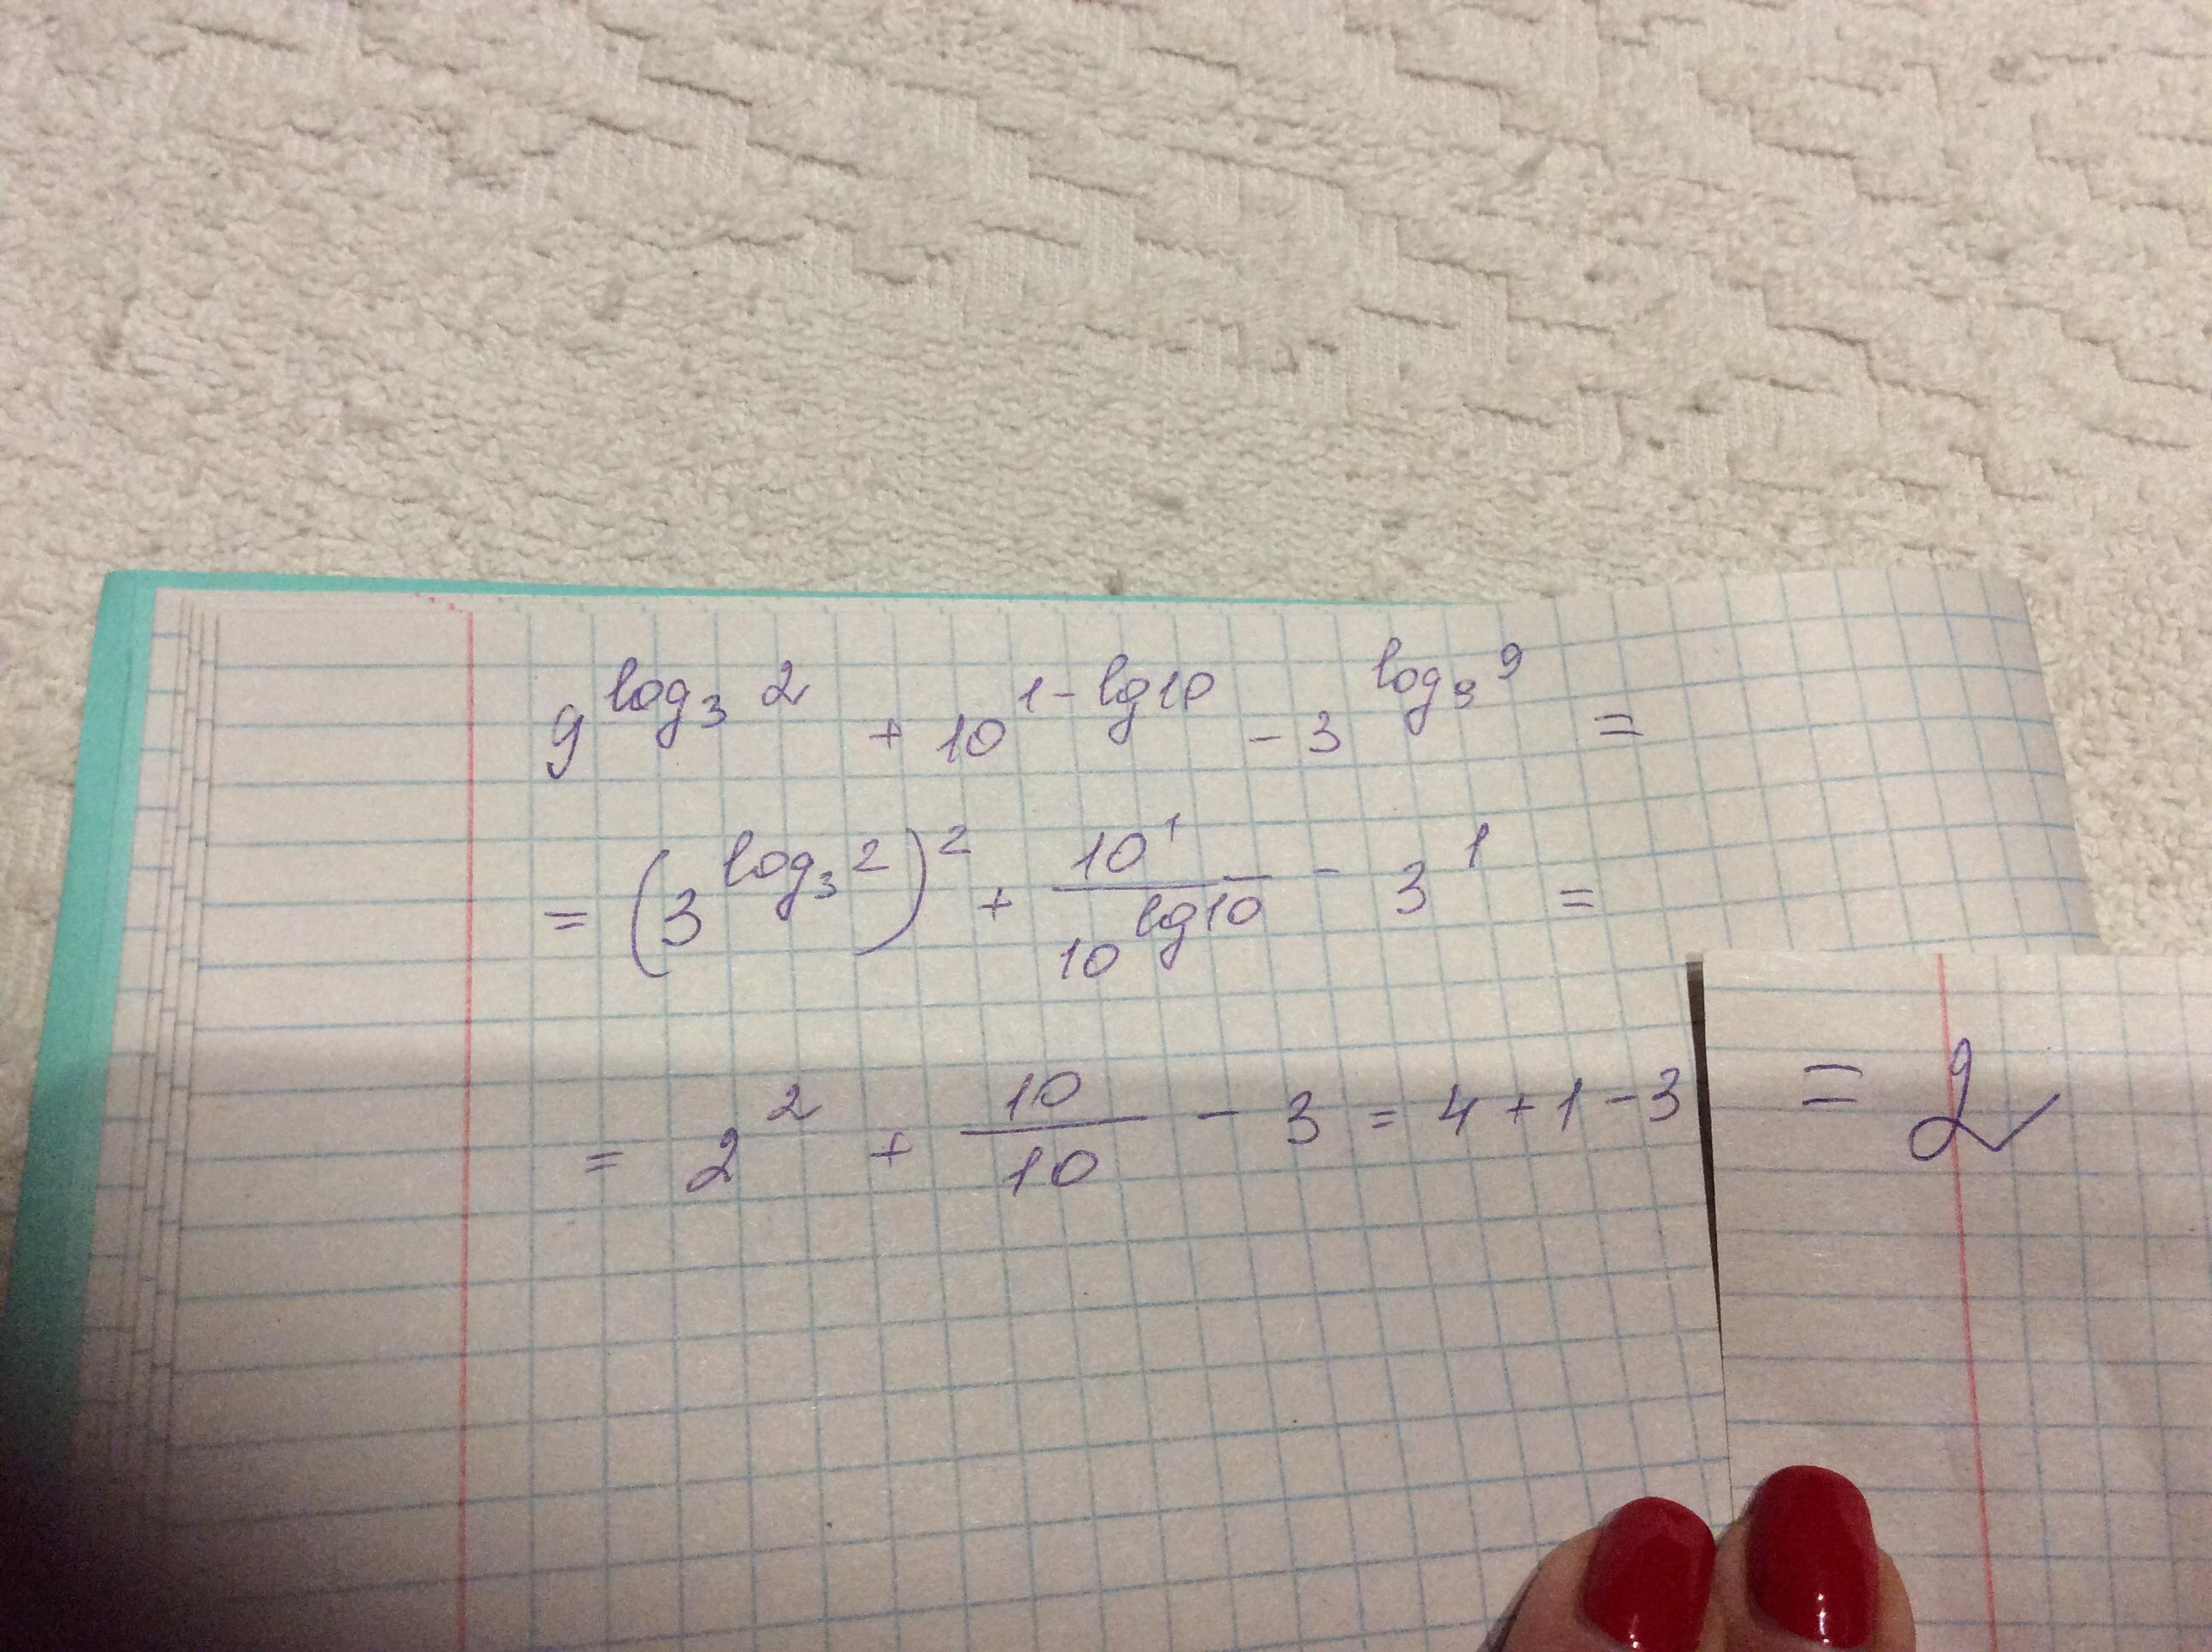 9^{log_3 2} + 10^{1-lg10} - 3^{log_9 9} =
= (3^{log_3 2})^2 + \frac{10^1}{10^{lg10}} - 3^1 =
= 2^2 + \frac{10}{10} - 3 = 4 + 1 - 3 = 2